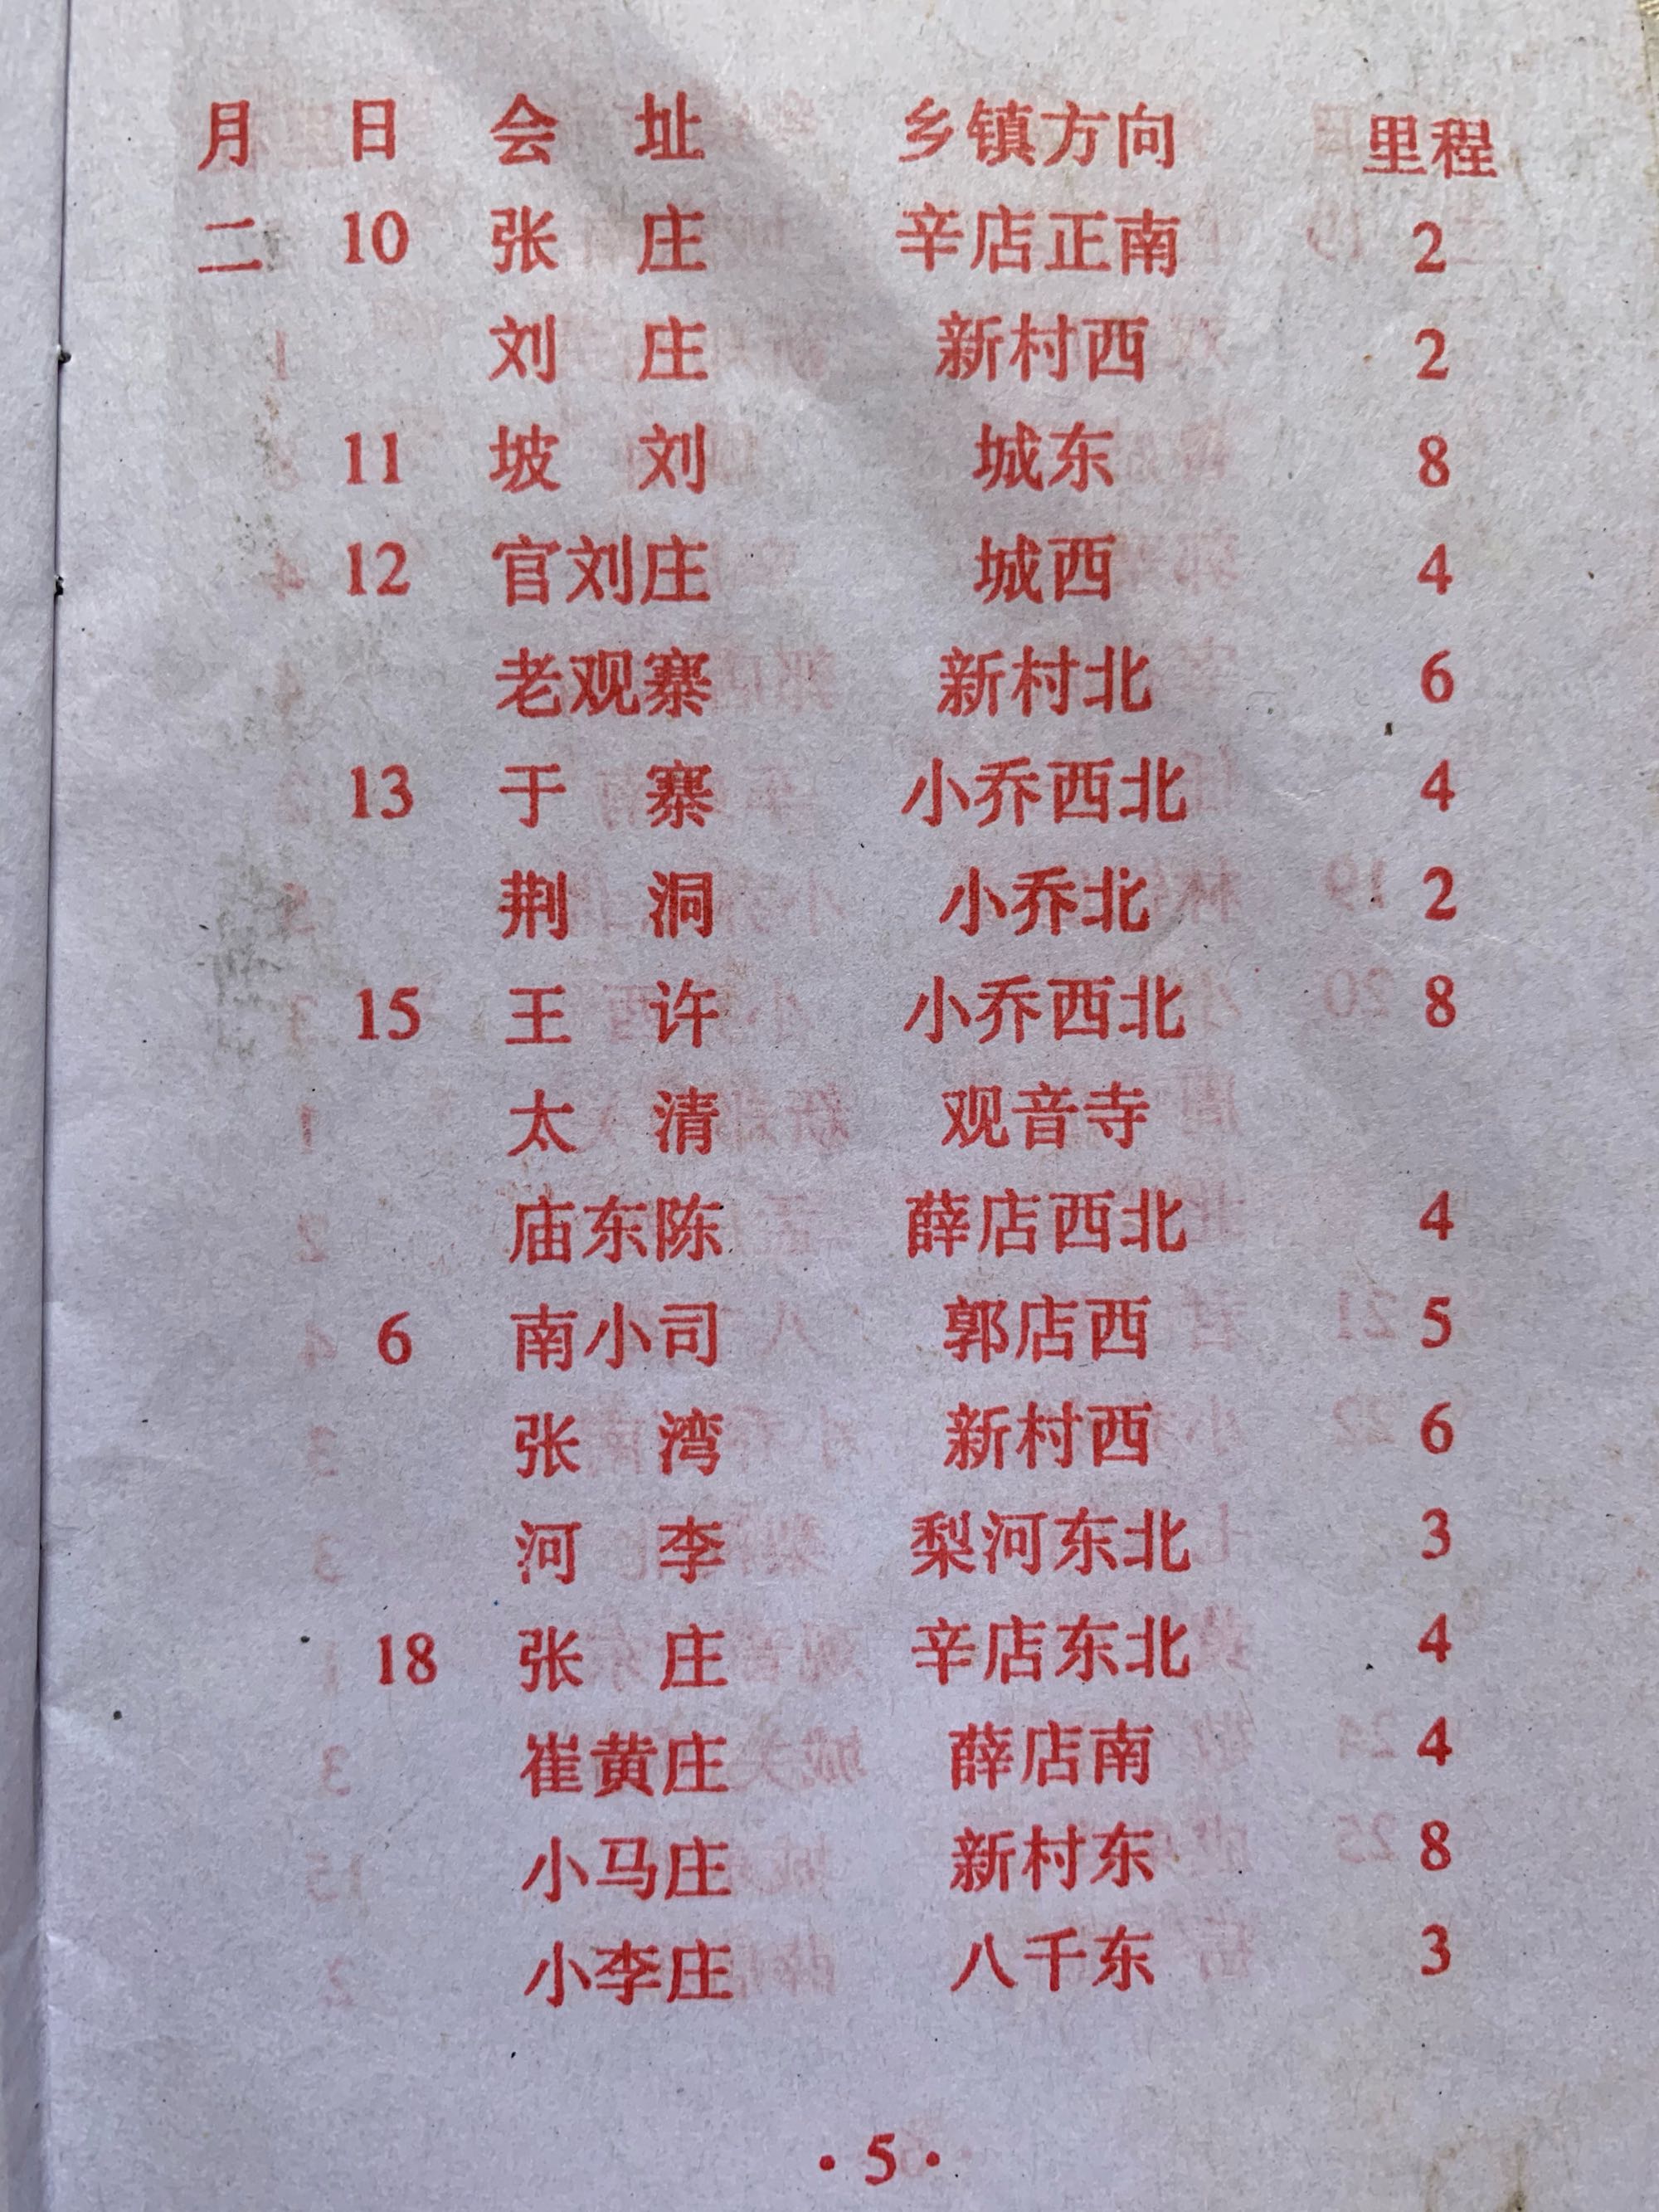 月 日 会 址 乡镇方向 里程
二 10 张 庄 辛店正南 2
刘 庄 新村西 2
11 坡 刘 城东 8
12 官刘庄 城西 4
老观寨 新村北 6
13 于 寨 小乔西北 4
荆 洞 小乔北 2
15 王 许 小乔西北 8
太 清 观音寺
庙东陈 薛店西北 4
6 南小司 郭店西 5
张 湾 新村西 6
河 李 梨河东北 3
18 张 庄 辛店东北 4
崔黄庄 薛店南 4
小马庄 新村东 8
小李庄 八千东 3
· 5 ·